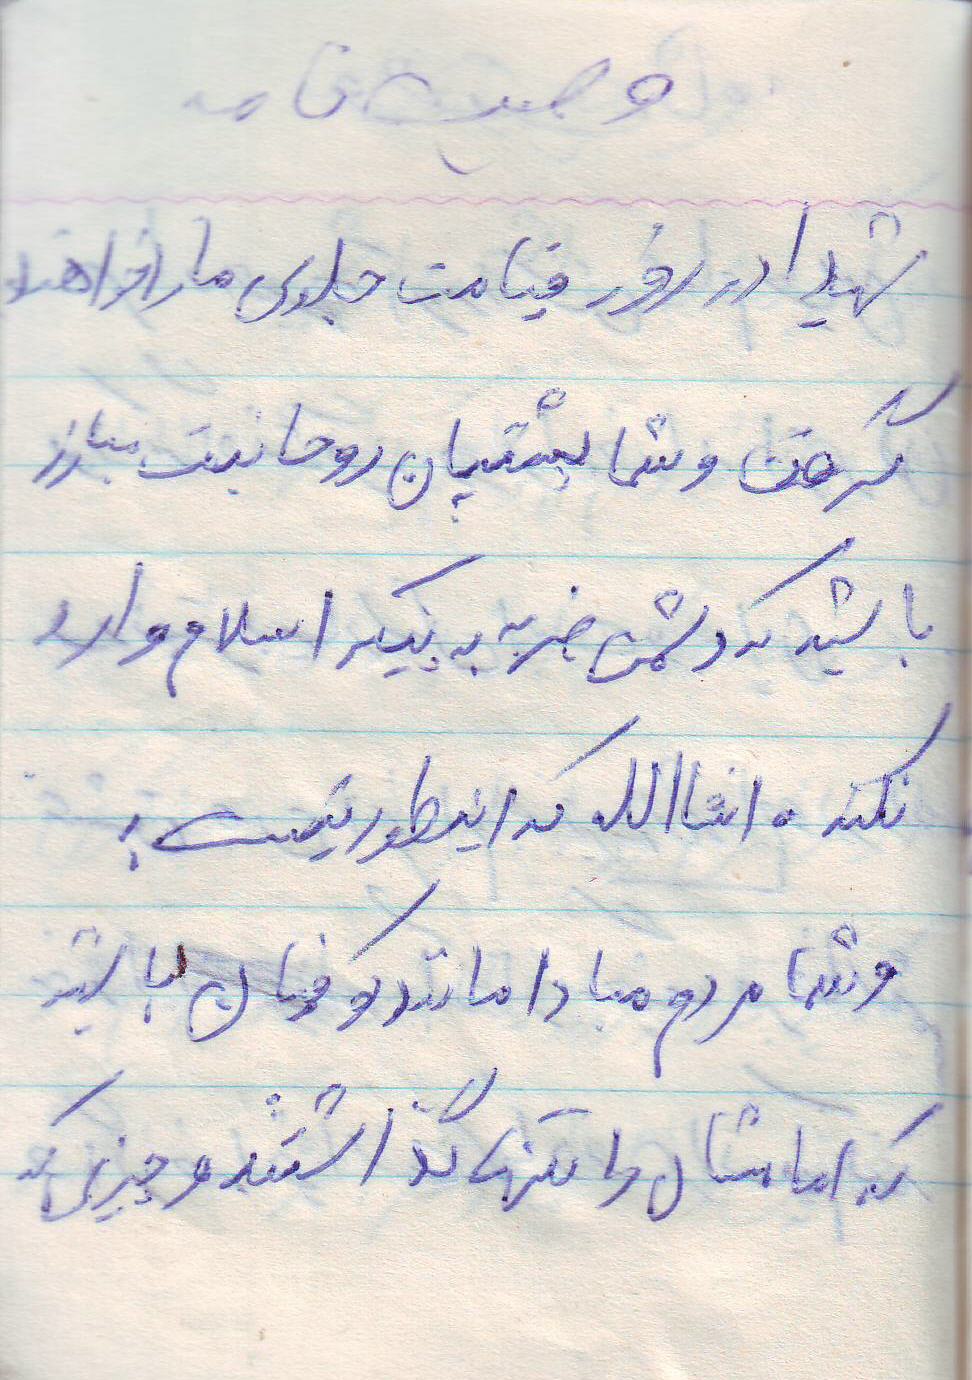 وصیت نامه
شهدا در روز قیامت جلوی ما را خواهند
گرفت و شما پشتیبان روحانیت مبارز
باشید که دشمن ضربه به پیکر اسلام وارد
نکند . انشاالله که اینطور نیست ؛
و شما مردم مبادا مانند کوفیان باشید
که امامشان را تنها گذاشتند و چیزی که